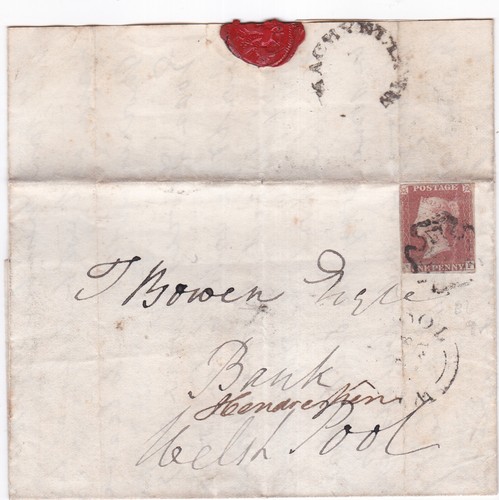 MACHYNLLETH
POSTAGE
NE PENNY
T Bowen Esqre
Bank
Hendrehên
Welsh Pool